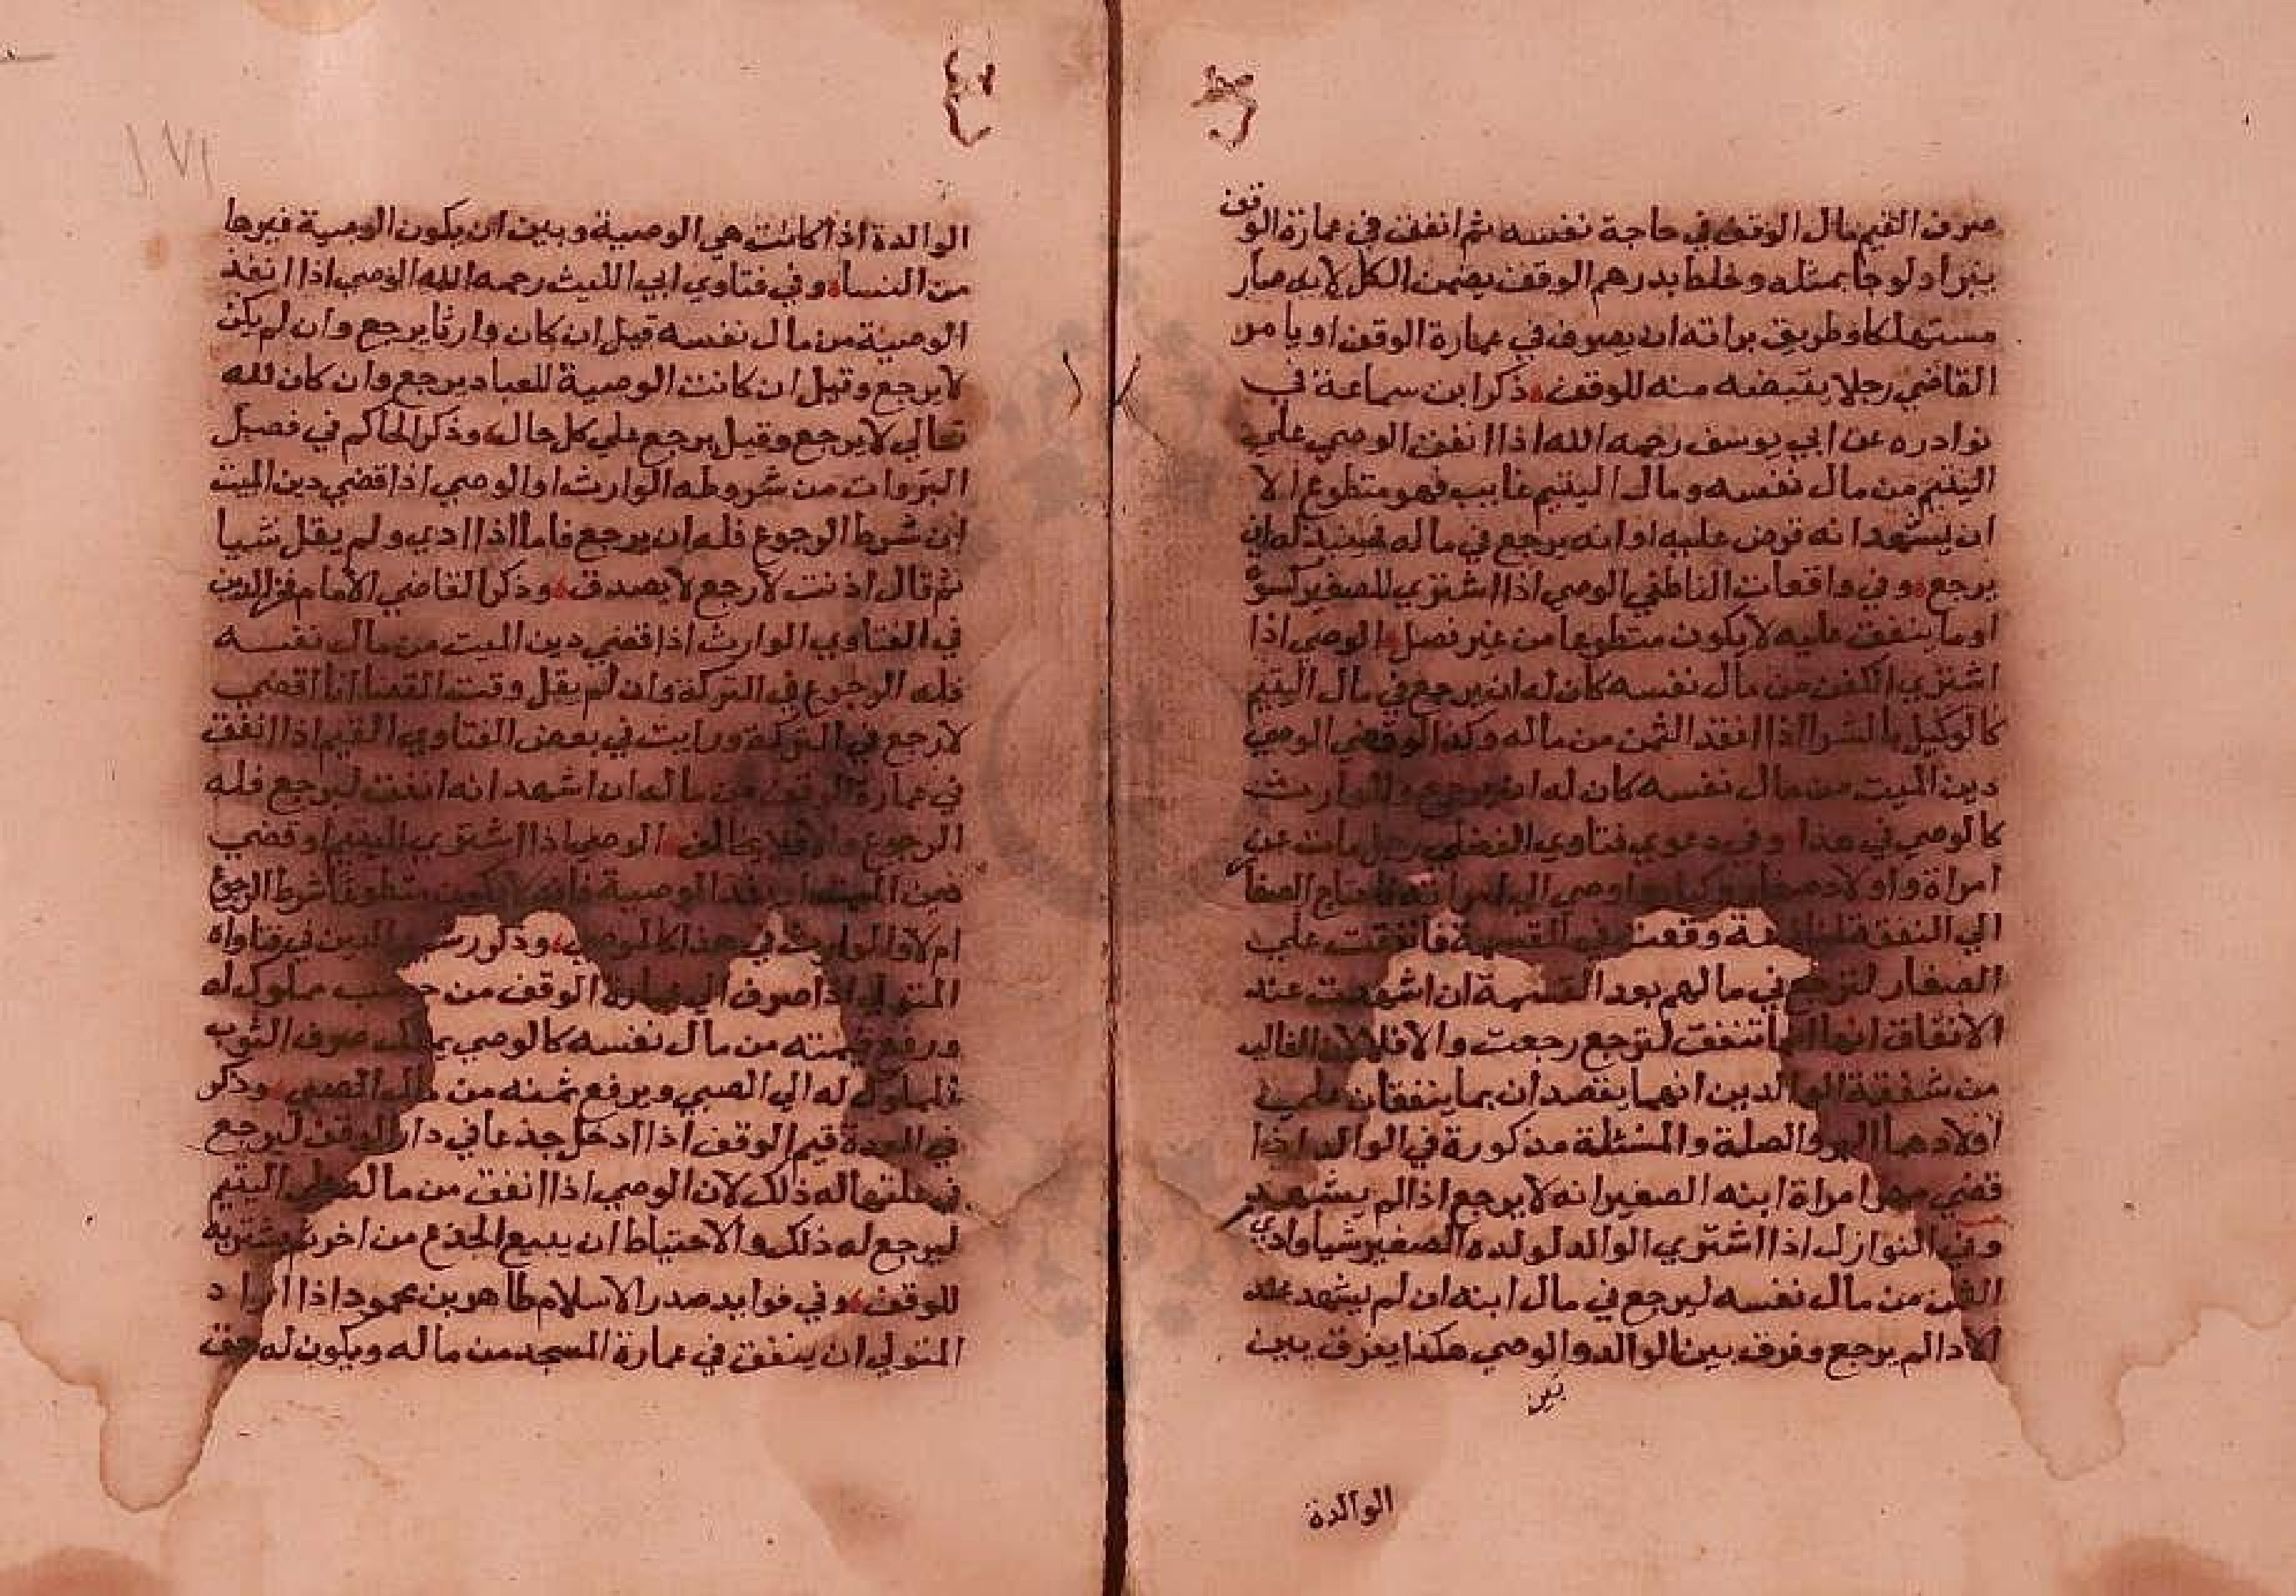 صرف القيم مال الوقف في حاجة نفسه ثم انفق في عمارة الوقف
يبرا ولو جا بمثله وخلط بدرهم الوقف يضمن الكل لانه صار
مستهلكا وطريق براته ان يصرف في عمارة الوقف او يامر
القاضي رجلا يقبضه منه للوقف ذكر ابن سماعة في
نوادره عن ابي يوسف رحمه الله اذا انفق الوصي علي
اليتيم من مال نفسه ومال اليتيم غايب فهو متطوع الا
ان يشهد انه قرض عليه او انه يرجع في ماله
يرجع وفي واقعات الناطفي الوصي اذا اشتري للصغير كسوة
او ما ينفق عليه لا يكون متطوعا من غير فصل الوصي اذا
اشتري الكفن من مال نفسه كان له ان يرجع في مال اليتيم
كالوكيل بالشرا اذا انقد الثمن من ماله وكذا لو قضي الوصي
دين الميت من مال نفسه كان له ان يرجع والوارث
كالوصي في هذا وفي دعوي فتاوي الفضلي رجل مات عن
امراة واولاد صغار واوصي الي المراة الصغا
الي النفقة وقعت في القسمة فانفقت علي
الصغار لترجع في مالهم بعد القسمة ان اشهدت عند
الانفاق انها انما تنفق لترجع رجعت والا فلا لان الغالب
من شفقة الوالدين انهما يقصدان بما ينفقان علي
اولادهما البر والصلة والمسئلة مذكورة في الوالد اذا
قضي مهر امراة ابنه الصغير انه لا يرجع اذا لم يشهد
وفي النوازل اذا اشتري الوالد لولده الصغير شيا وادي
الثمن من مال نفسه ليرجع في مال ابنه ان لم يشهد عند
الادا لم يرجع وفرق بين الوالد والوصي هكذا يفرق بين
بين
الوالدة
الوالدة اذا كانت هي الوصية وبين ان يكون الوصية غيرها
من النسا وفي فتاوي ابي الليث رحمه الله الوصي اذا انفذ
الوصية من مال نفسه قيل ان كان وارثا يرجع وان لم يكن
لا يرجع وقيل ان كانت الوصية للعباد يرجع وان كان لله
تعالي لا يرجع وقيل يرجع علي كل حال وذكر الحاكم في فصل
البروات من شروطه الوارث او الوصي اذا قضي دين الميت
ان شرط الرجوع فله ان يرجع فاما اذا ادي ولم يقل شيا
ثم قال اذنت لارجع لا يصدق وذكر القاضي الامام فخر الدين
في الفتاوي الوارث اذا قضي دين الميت من مال نفسه
فله الرجوع في التركة وان لم يقل وقت القضا انا اقضي
لارجع في التركة ورايت في بعض الفتاوي القيم اذا انفق
في عمارة الوقف من ماله ان اشهد انه انفق ليرجع فله
الرجوع والا فلا الوصي اذا اشتري لليتيم او قضي
دين الميت او نفذ الوصية فانه لا يكون متطوعا شرط الرجوع
ام لا والوارث في هذا كالوصي وذكر الدين في فتاواه
المتولي اذا صرف الي عمارة الوقف من خشب مملوك له
ورفع قيمته من مال نفسه كالوصي يملك صرف الثوب
المملوك له الي الصبي ويرفع ثمنه من مال الصبي وذكر
في العدة قيم الوقف اذا ادخل جذعا في دار الوقف ليرجع
في غلتها له ذلك لان الوصي اذا انفق من ماله علي اليتيم
ليرجع له ذلك والاحتياط ان يبيع الجذع من اخر ثم يشتريه
للوقف وفي فوايد صدر الاسلام طاهر بن محمود اذا اراد
المتولي ان ينفق في عمارة المسجد من ماله ويكون له حق